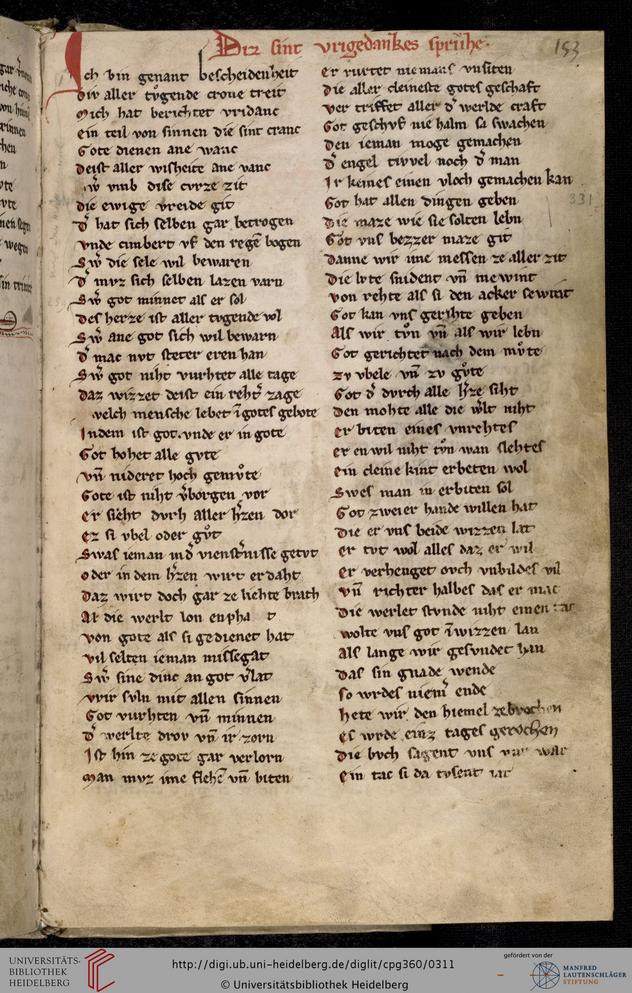 Diz sint vrigedankes sprúche.
153
Ich bin genant bescheidenheit
div aller tv̊gende crone treit
Mich hat berichtet vridanc
ein teil von sinnen die sint cranc
Gote dienen ane wanc
deist aller wisheite ane vanc
Sw̓ vmb dise cvrze zit
die ewige vreide git
d̓ hat sich selben gar betrogen
vnde cimbert vf den regē bogen
Sw̓ die sele wil bewaren
d̓ mvz sich selben lazen varn
Sw̓ got minnet als er sol
des herze ist aller tvgende vol
Sw̓ ane got sich wil bewarn
d̓ mac nvt steter eren han
Sw̓ got niht vurhtet alle tage
daz wizzet deist ein reht̓ zage
welch mensche lebet ī gotes gebote
Indem ist got. vnde er in gote
Got hohet alle gvte
vn̄ nideret hoch gemv̊te
Gote ist niht v̓borgen vor
er sieht dvrh aller h̓zen dor
ez si vbel oder gv̊t
Swas ieman in d̓ vienst̓nisse getvt
oder in dem h̓zen wirt erdaht
daz wirt doch gar ze liehte braht
Al die werlt lon enpha t
von gote als si gedienet hat
vil selten ieman missegat
Sw̓ sine dinc an got v̓lat
vvir svln mit allen sinnen
Got vurhten vn̄ minnen
d̓ werlte drov vn̄ ir zorn
Ist hin ze gote gar verlorn
Man mvz ime flehē vn̄ biten
er vurtet niemans vnsiten
die aller cleineste gotes geschaft
ver triffet aller d̓ werlde craft
Got geschvf nie halm so swachen
den ieman moge gemachen
d̓ engel tivvel noch d̓ man
Ir keines einen vloch gemachen kan
Got hat allen dingen geben
331
die maze wie sie solten lebn
Got vns bezzer maze git
danne wir ime messen ze aller zit
die lvte snident vn̄ mewint
von rehte als si den acker sewint
Got kan vns gerihte geben
Als wir tv̊n vn̄ als wir lebn
Got gerichtet nach dem mv̊te
zv vbele vn̄ zv gv̊te
Got d̓ dvrch alle h̓ze siht
den mohte alle die w̓lt niht
er biten eines vnrehtes
er en wil niht tv̊n wan slehtes
ein cleine kint erbeten wol
Swes man in erbiten sol
Got zweier hande willen hat
die er vns beide wizzen lat
er tvt wol alles daz er wil
er verhenget ovch vnbildes vil
vn̄ richter halbes das er mac
die werlet stvnde niht einen tac
wolte vns got ī wizzen lan
als lange wir gesvndet han
das sin gnade wende
so wrdes niem̓ ende
hete wir den hiemel zebrochen
es wrde einz tages gerochen
die bvch sagent vns vur war
ein tac si da tvsent iar
UNIVERSITÄTS-
BIBLIOTHEK
HEIDELBERG
http://digi.ub.uni-heidelberg.de/diglit/cpg360/0311
© Universitätsbibliothek Heidelberg
gefördert von der
MANFRED
LAUTENSCHLÄGER
STIFTUNG